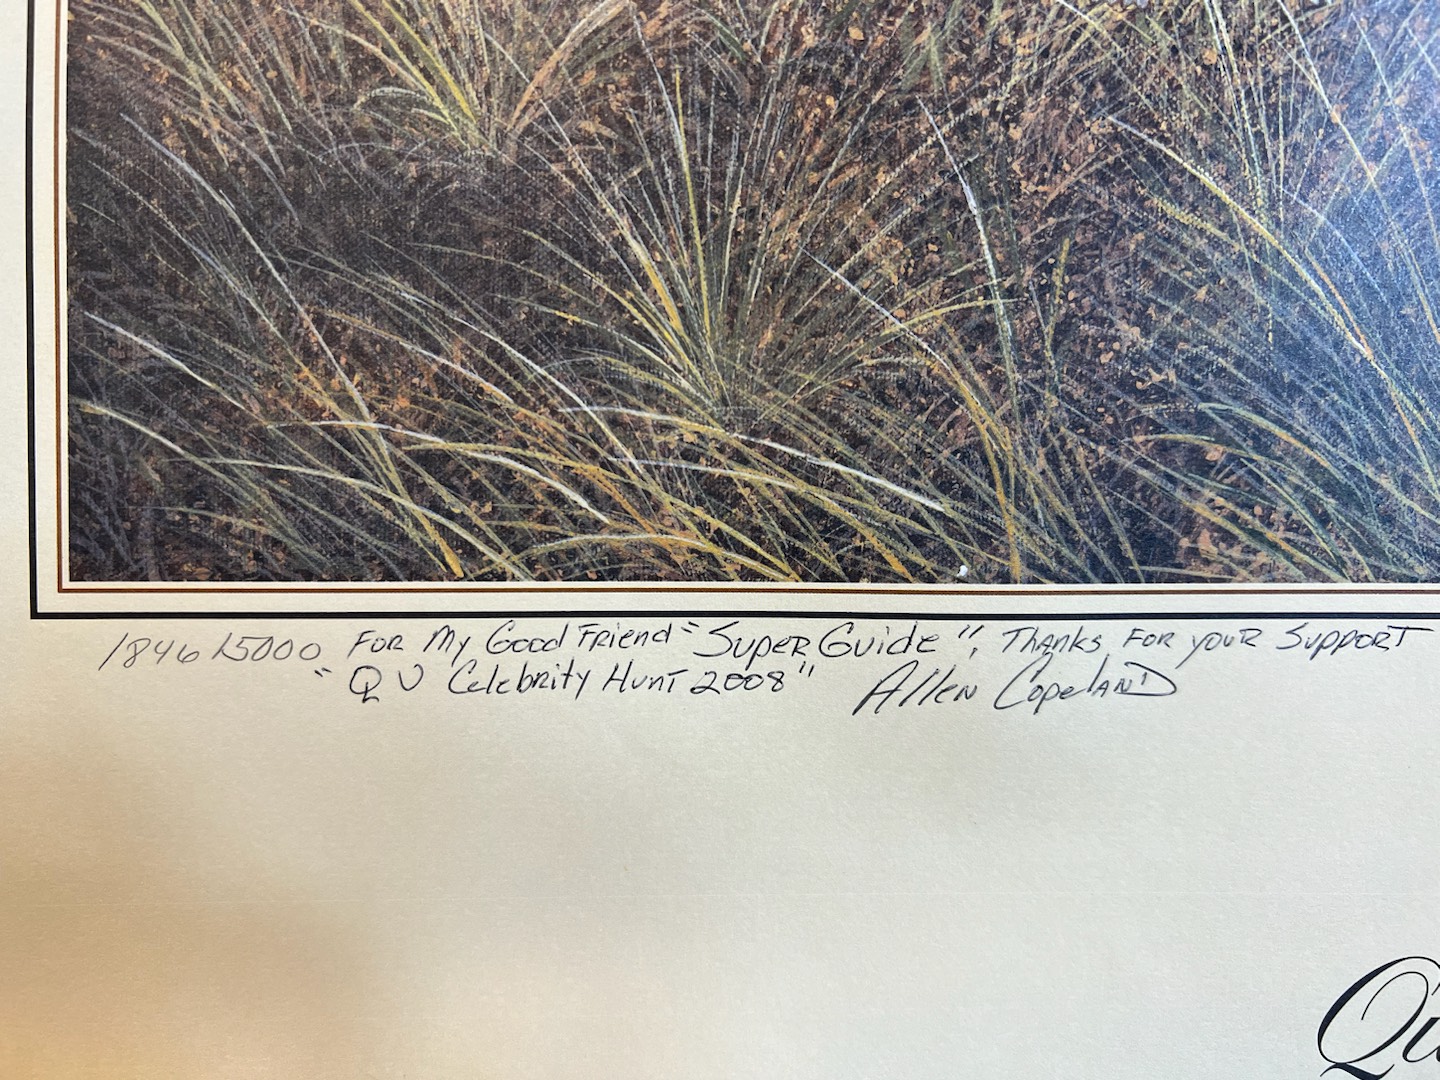 1846/5000 For My Good Friend "Super Guide", Thanks For your Support
"QU Celebrity Hunt 2008" Allen Copeland
Qu